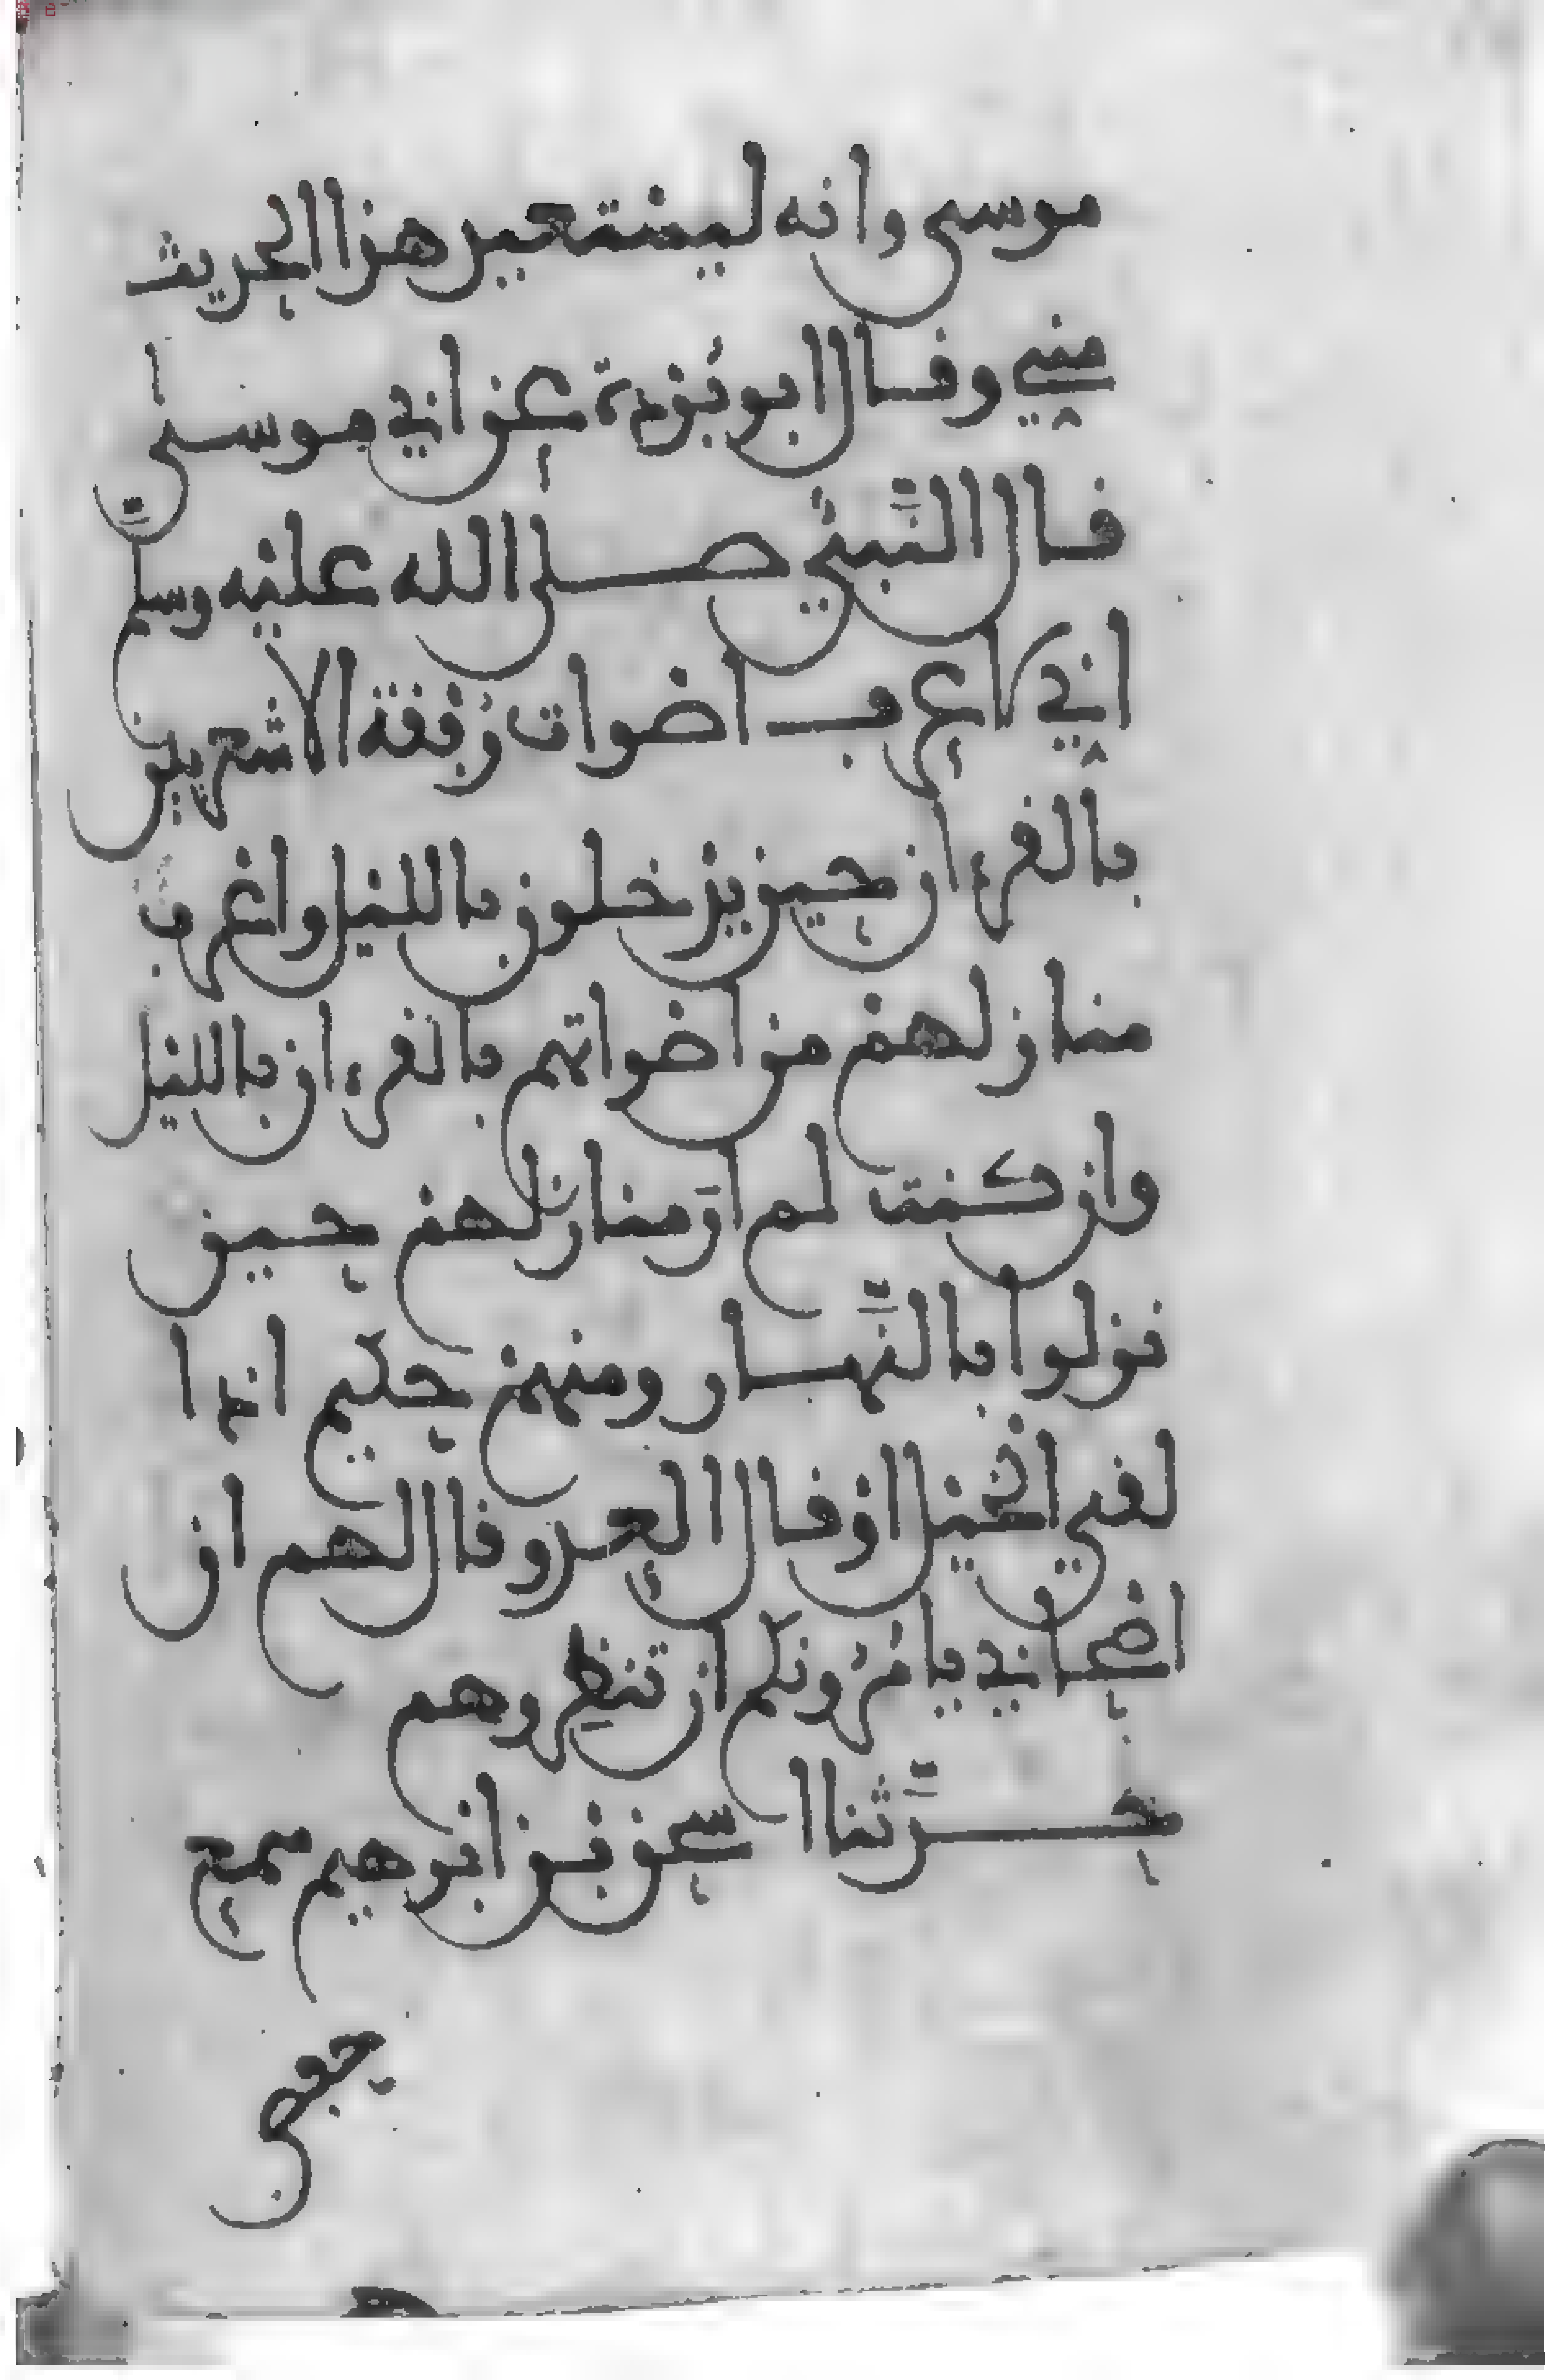 موسى وانه ليستعيد هذا الحديث
مني وقال ابو بردة عن ابي موسى
قال النَّبي صلى الله عليه وسلم
اني لاعرف اصوات رفقة الاشعريين
بالقرءان حين يدخلون باليل واعرف
منازلهم من اصواتهم بالقرءان بالليل
وان كنت لم ارَ منازلهم حين
نزلوا بالنَّهار ومنهم حكيم اذا
لقي الخيل او قال العدو قال لهم ان
اصحابي يامرونكم ان تنظروهم
حدَّثنا اسحق بن ابرهيم سمع
حفص